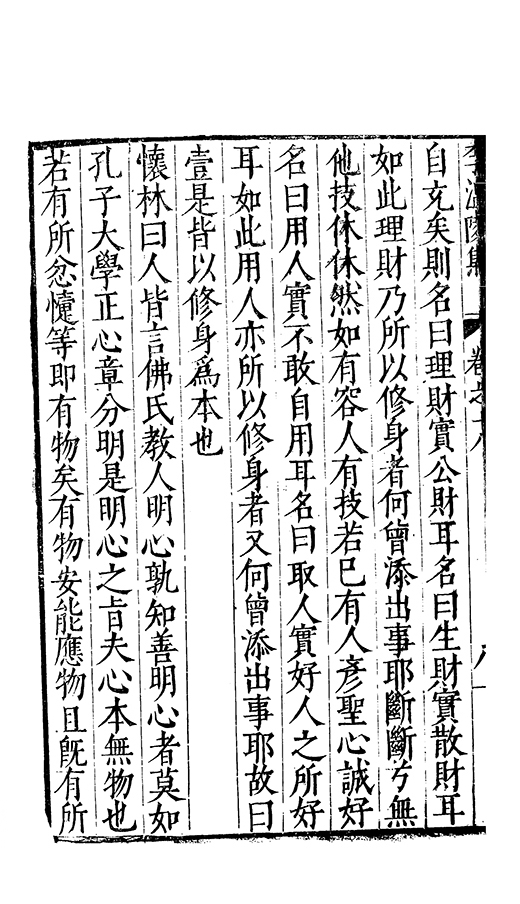 李溫陵集 卷之十八 八
自充矣則名曰理財實公財耳名曰生財實散財耳
如此理財乃所以修身者何曾添出事耶斷斷兮無
他技休休然如有容人有技若已有人彥聖心誠好
名曰用人實不敢自用耳名曰取人實好人之所好
耳如此用人亦所以修身者又何曾添出事耶故曰
壹是皆以修身爲本也
懷林曰人皆言佛氏教人明心孰知善明心者莫如
孔子大學正心章分明是明心之旨夫心本無物也
若有所忿懥等即有物矣有物安能應物且旣有所